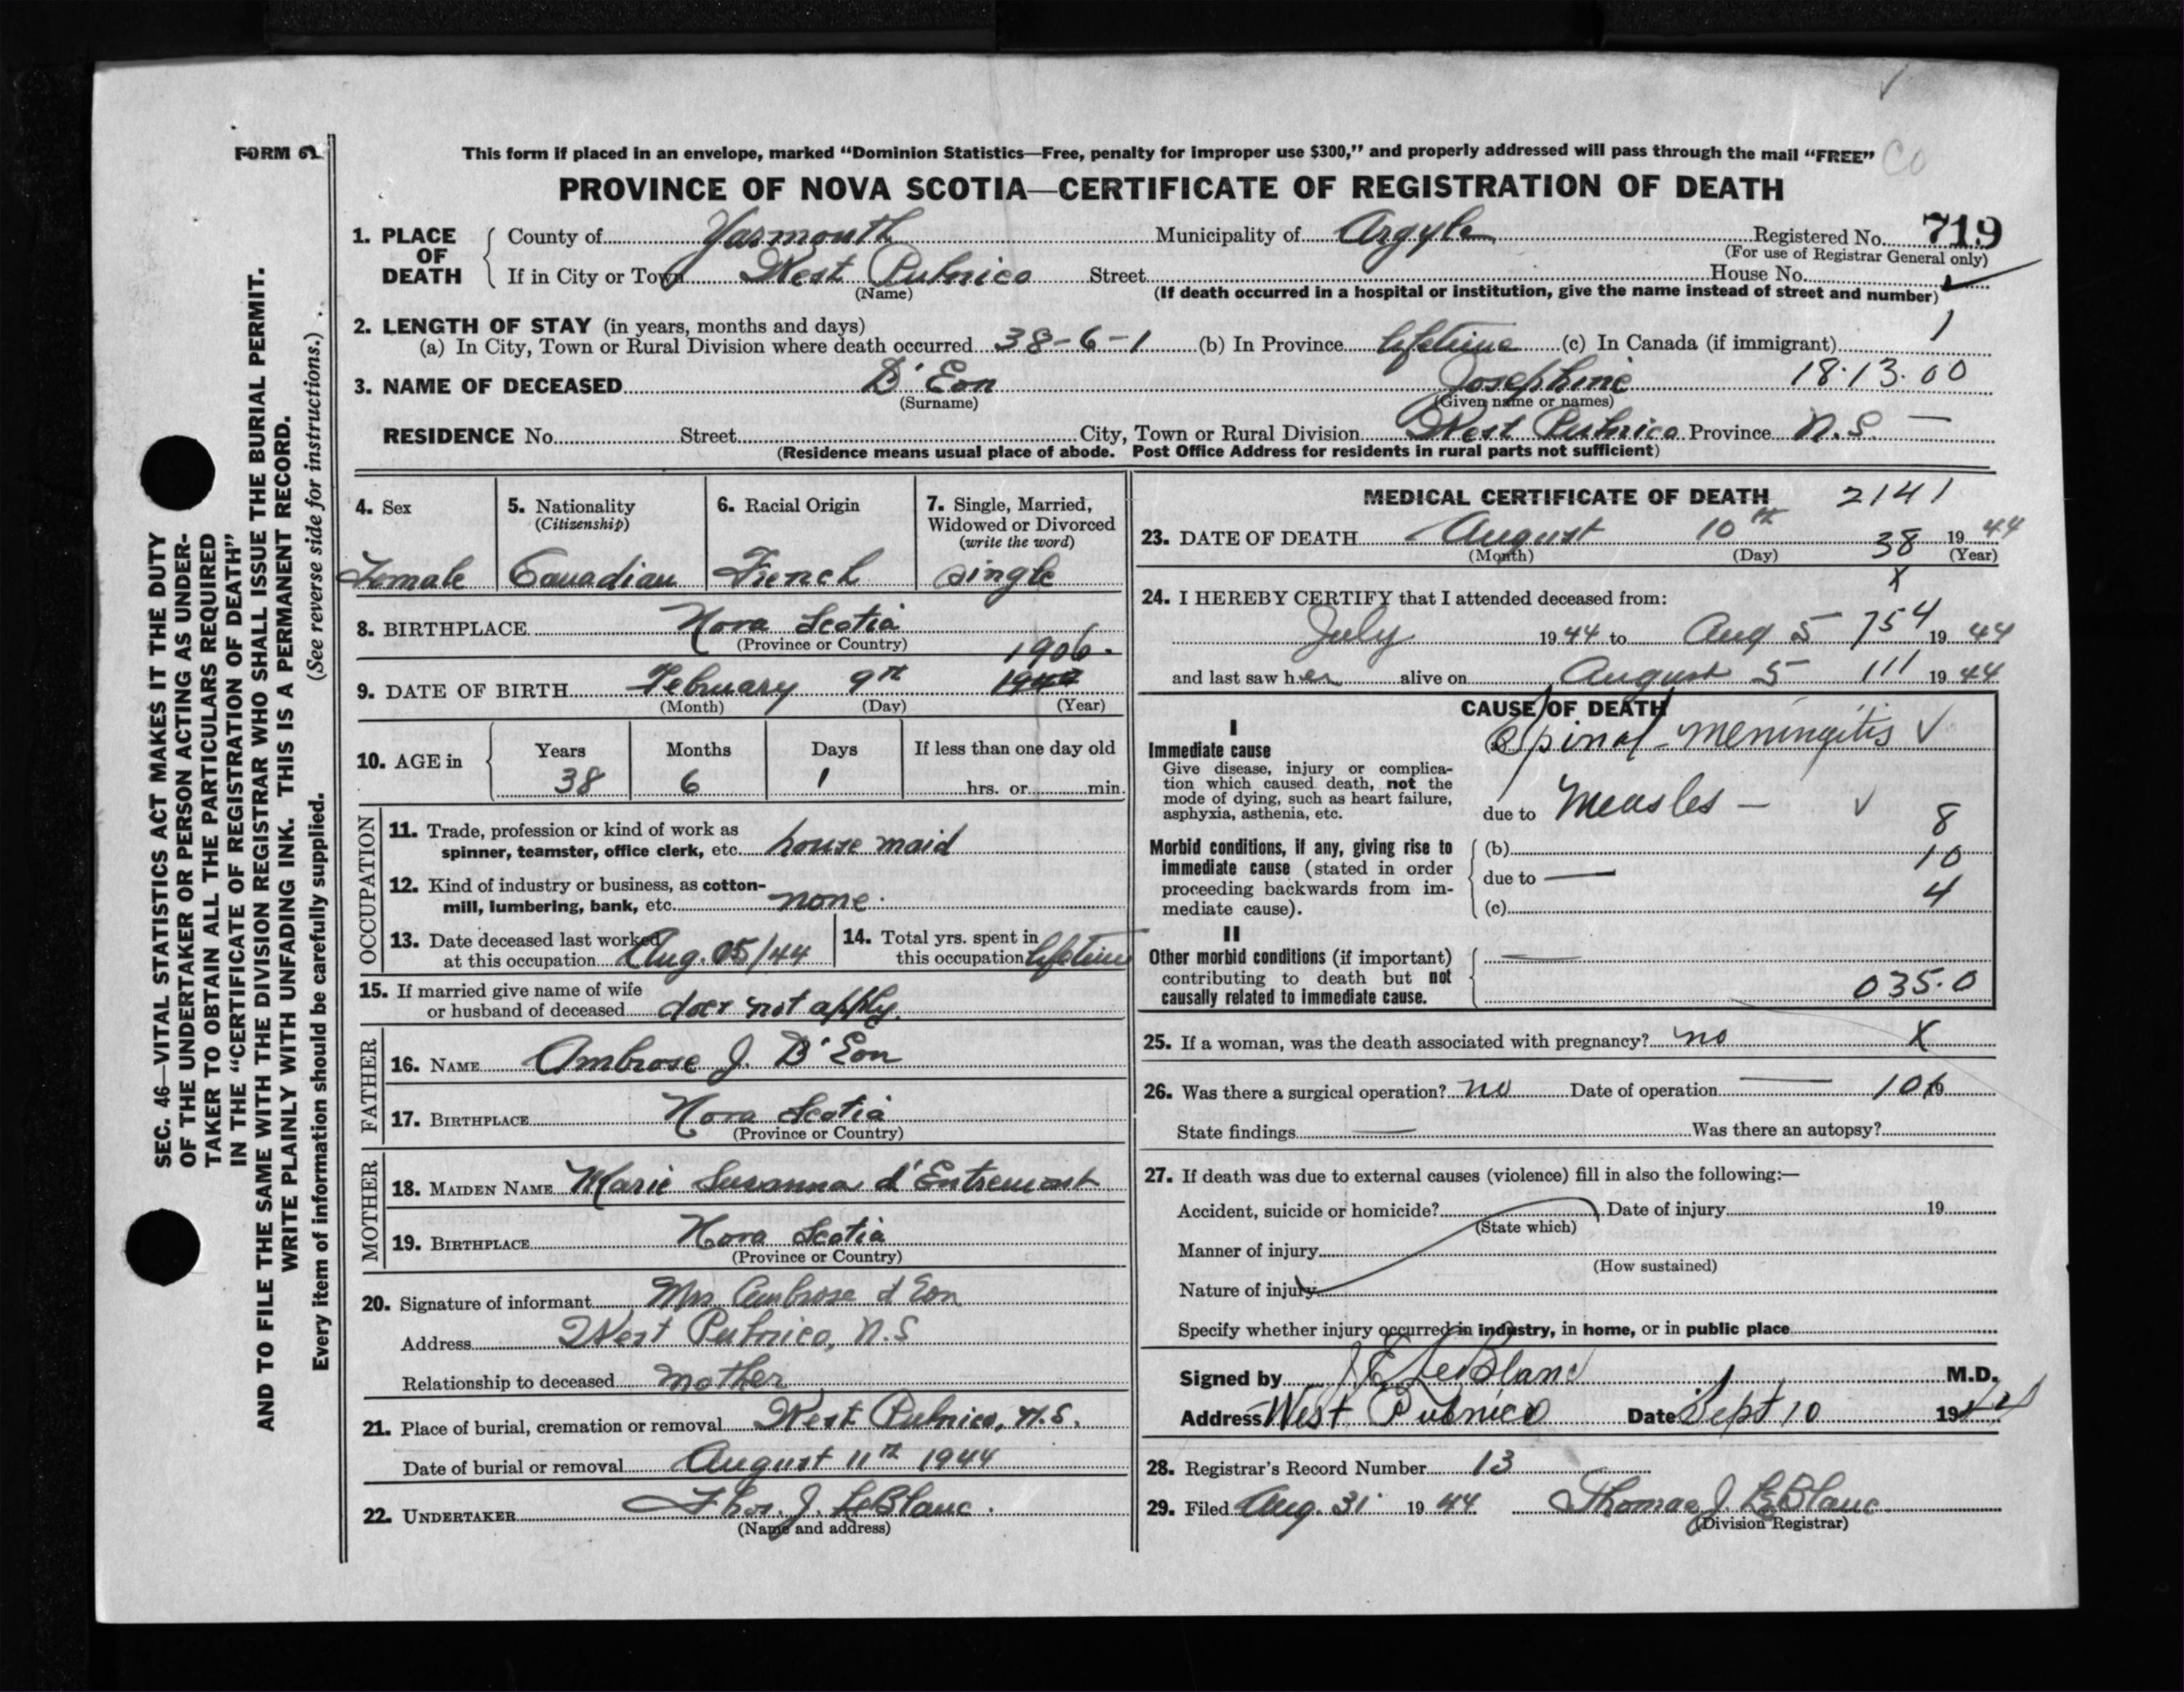 FORM 6
This form if placed in an envelope, marked “Dominion Statistics—Free, penalty for improper use $300,” and properly addressed will pass through the mail “FREE” CO
PROVINCE OF NOVA SCOTIA—CERTIFICATE OF REGISTRATION OF DEATH
1. PLACE OF DEATH County of Yarmouth Municipality of Argyle Registered No. 719
(For use of Registrar General only)
If in City or Town West Pubnico Street House No.
(Name) (If death occurred in a hospital or institution, give the name instead of street and number)
2. LENGTH OF STAY (in years, months and days)
(a) In City, Town or Rural Division where death occurred 38-6-1 (b) In Province lifetime (c) In Canada (if immigrant) 1
3. NAME OF DECEASED D'Eon Josephine 18·13·00
(Surname) (Given name or names)
RESIDENCE No. Street City, Town or Rural Division West Pubnico Province N.S. —
(Residence means usual place of abode. Post Office Address for residents in rural parts not sufficient)
4. Sex 5. Nationality (Citizenship) 6. Racial Origin 7. Single, Married, Widowed or Divorced (write the word)
Female Canadian French single
8. BIRTHPLACE Nova Scotia
(Province or Country)
1906.
9. DATE OF BIRTH February 9th
(Month) (Day) (Year)
10. AGE in Years Months Days If less than one day old
38 6 1 hrs. or min.
OCCUPATION
11. Trade, profession or kind of work as
spinner, teamster, office clerk, etc. house maid
12. Kind of industry or business, as cotton-
mill, lumbering, bank, etc. none.
13. Date deceased last worked
at this occupation Aug. 05/44
14. Total yrs. spent in
this occupation lifetime
15. If married give name of wife
or husband of deceased does not apply.
FATHER
16. NAME Ambrose J. D'Eon
17. BIRTHPLACE Nova Scotia
(Province or Country)
MOTHER
18. MAIDEN NAME Marie Susanna d'Entremont
19. BIRTHPLACE Nova Scotia
(Province or Country)
20. Signature of informant Mrs Ambrose d'Eon
Address West Pubnico, N.S
Relationship to deceased mother
21. Place of burial, cremation or removal West Pubnico, N.S.
Date of burial or removal August 11th 1944
22. UNDERTAKER Thos. J. LeBlanc.
(Name and address)
MEDICAL CERTIFICATE OF DEATH 2141
23. DATE OF DEATH August 10th 38 1944
(Month) (Day) (Year)
X
24. I HEREBY CERTIFY that I attended deceased from:
July 1944 to Aug 5 754 1944
and last saw her alive on August 5 111 1944
CAUSE OF DEATH
I
Immediate cause Spinal meningitis
Give disease, injury or complica-
tion which caused death, not the
mode of dying, such as heart failure,
asphyxia, asthenia, etc.
due to Measles —
8
Morbid conditions, if any, giving rise to
immediate cause (stated in order
proceeding backwards from im-
mediate cause).
(b) 10
due to —
4
(c)
II
Other morbid conditions (if important)
contributing to death but not
causally related to immediate cause.
035·0
25. If a woman, was the death associated with pregnancy? no X
26. Was there a surgical operation? no Date of operation — 10 19
State findings — Was there an autopsy?
27. If death was due to external causes (violence) fill in also the following:—
Accident, suicide or homicide? Date of injury 19
(State which)
Manner of injury
(How sustained)
Nature of injury
Specify whether injury occurred in industry, in home, or in public place
Signed by J E LeBlanc M.D.
Address West Pubnico Date Sept 10 1944
28. Registrar's Record Number 13
29. Filed Aug. 31 1944 Thomas J. LeBlanc
(Division Registrar)
SEC. 46—VITAL STATISTICS ACT MAKES IT THE DUTY
OF THE UNDERTAKER OR PERSON ACTING AS UNDER-
TAKER TO OBTAIN ALL THE PARTICULARS REQUIRED
IN THE “CERTIFICATE OF REGISTRATION OF DEATH”
AND TO FILE THE SAME WITH THE DIVISION REGISTRAR WHO SHALL ISSUE THE BURIAL PERMIT.
WRITE PLAINLY WITH UNFADING INK. THIS IS A PERMANENT RECORD.
Every item of information should be carefully supplied. (See reverse side for instructions.)